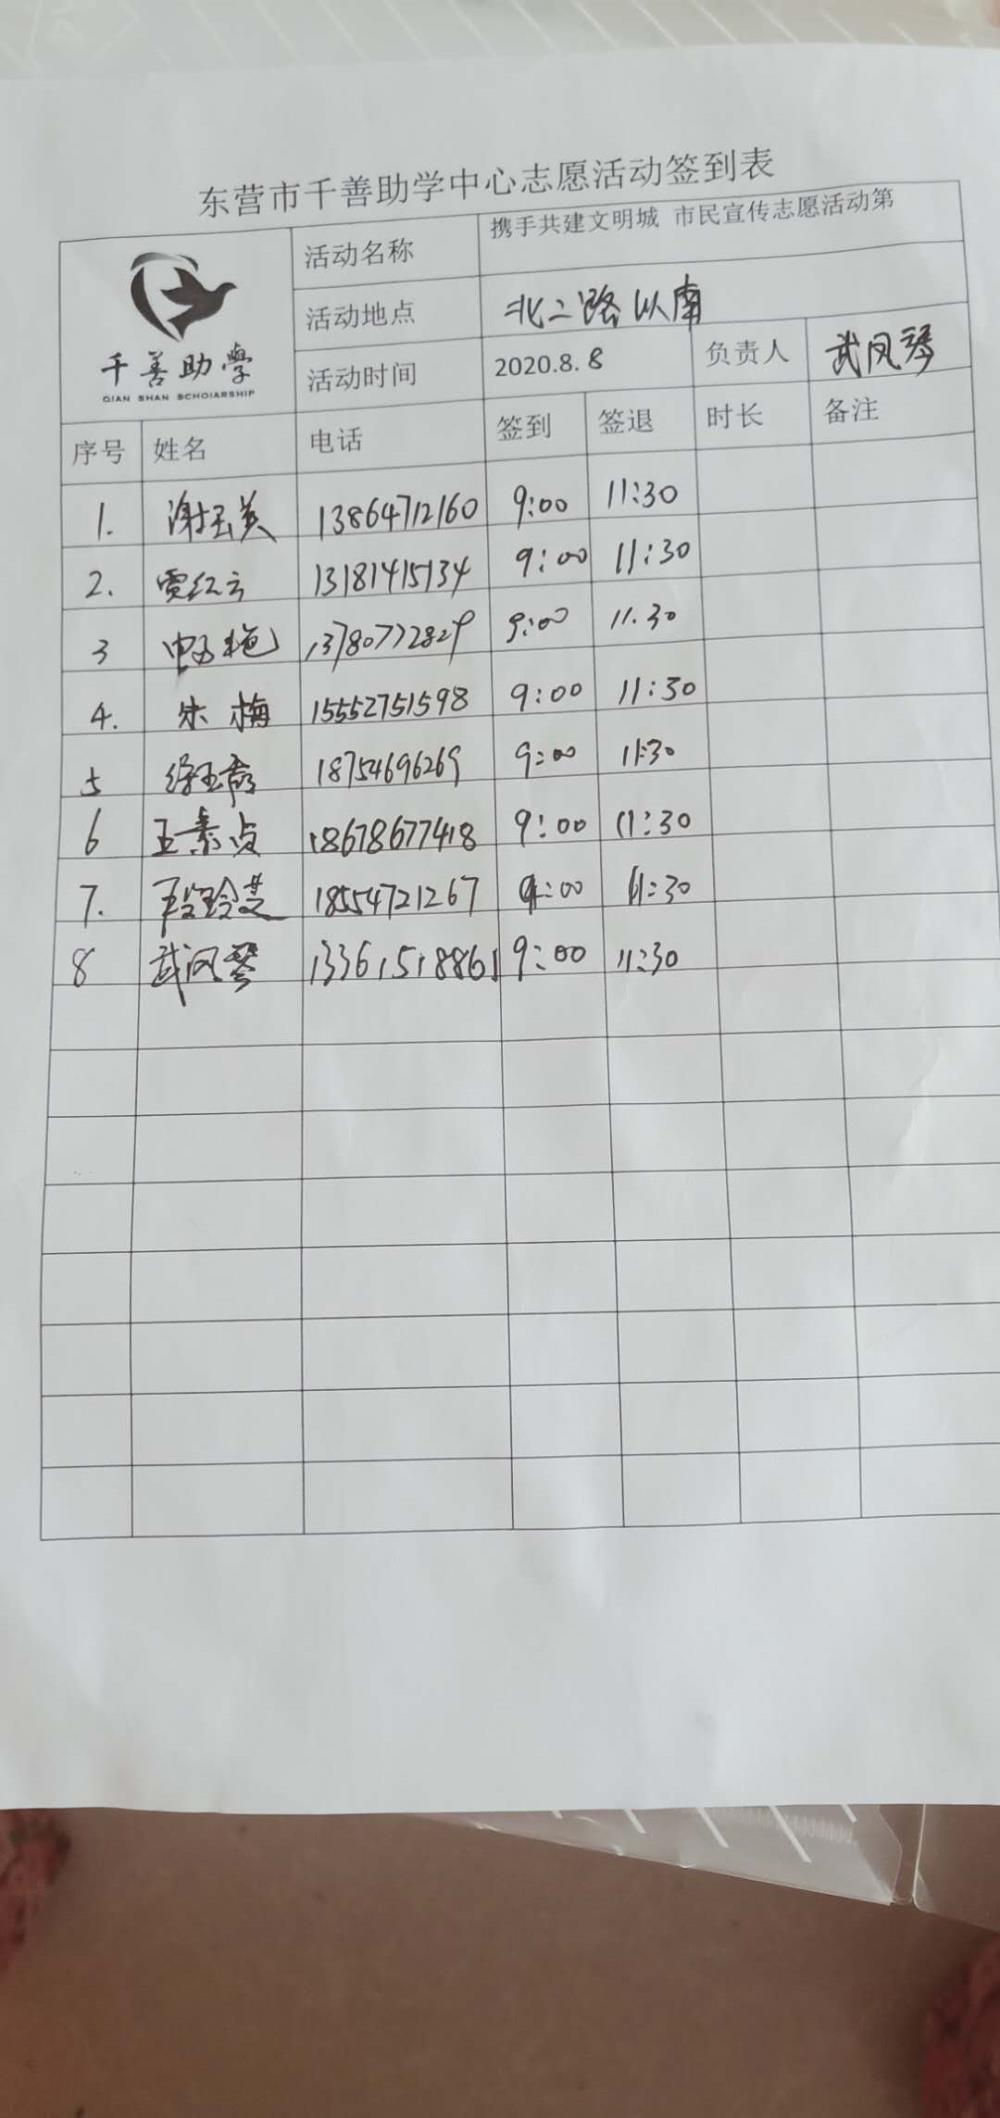 东营市千善助学中心志愿活动签到表
千善助学
QIAN SHAN SCHOIARSHIP
活动名称 携手共建文明城 市民宣传志愿活动第
活动地点 北二路以南
活动时间 2020.8.8 负责人 武凤琴
序号 姓名 电话 签到 签退 时长 备注
1. 谢玉英 13864712160 9:00 11:30
2. 贾红云 13181415134 9:00 11:30
3 13780772829 9:00 11.30
4. 朱梅 15552751598 9:00 11:30
5 18754696269 9:00 11:30
6 王素贞 18678677418 9:00 11:30
7. 18554721267 9:00 11:30
8 武凤琴 13361518861 9:00 11:30